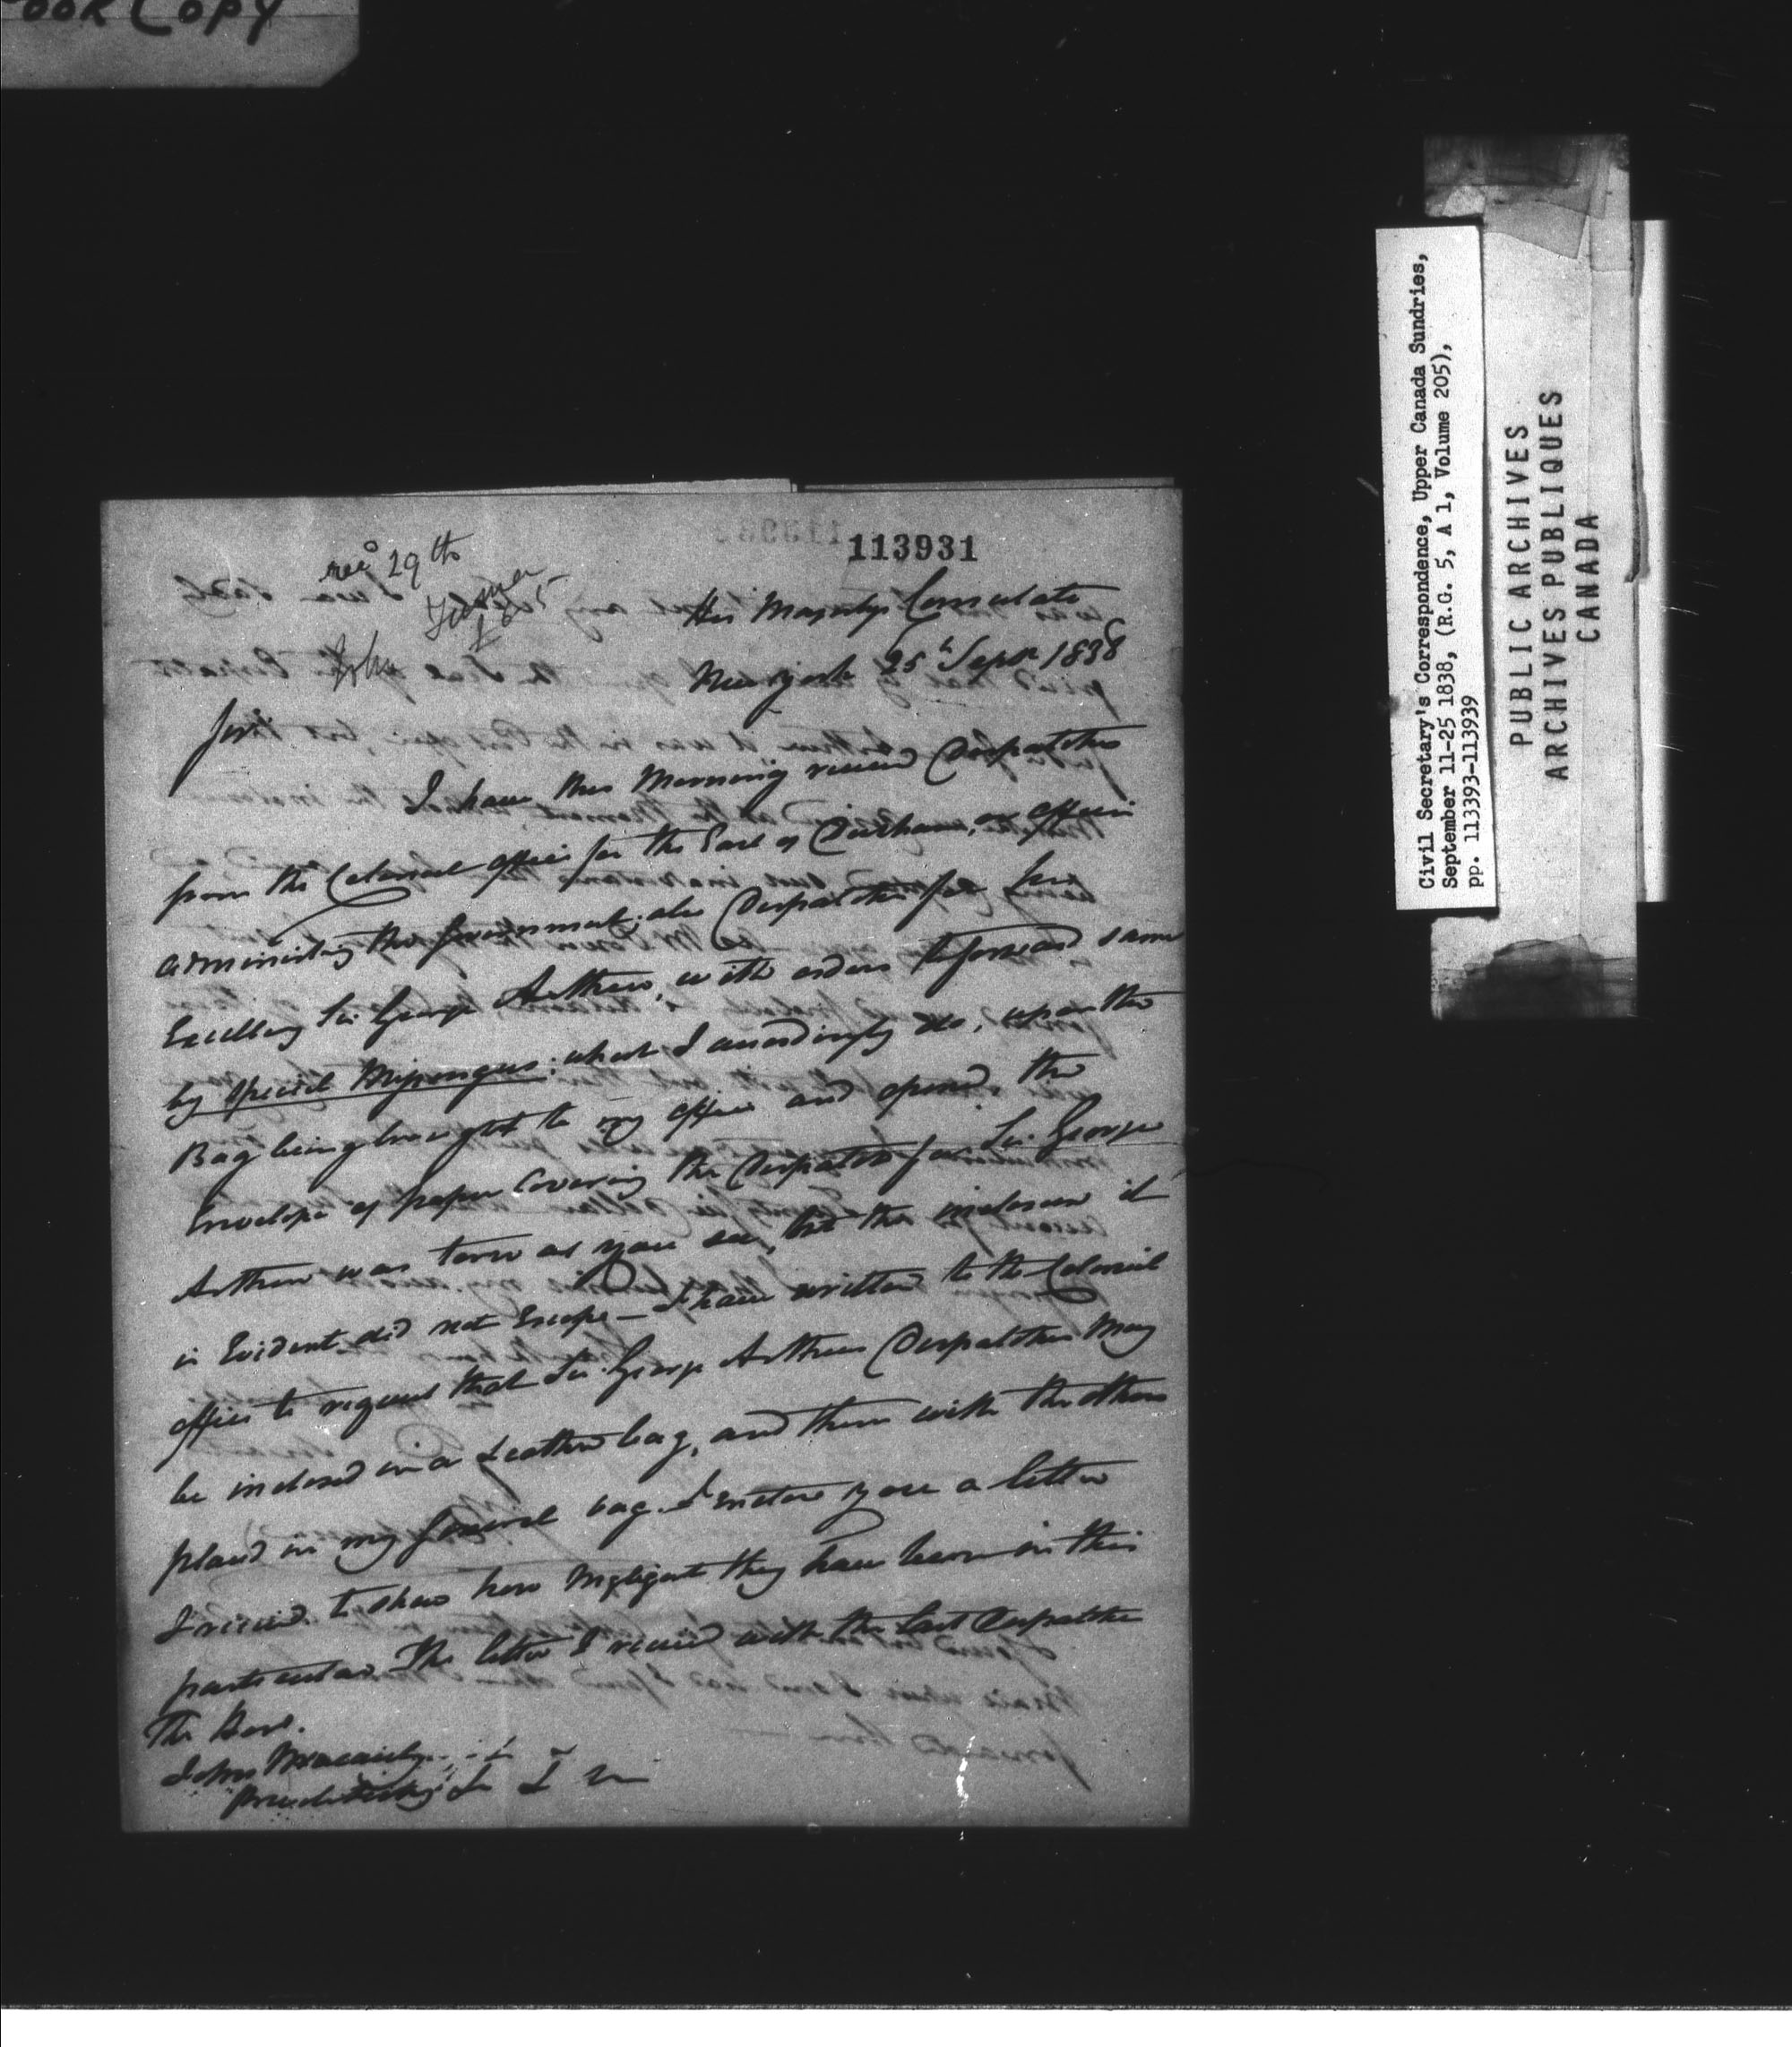 OOK COPY
113931
rec'd 29th
His Majestys Consulate
New York 25th Septr 1838
Sir
I have this Morning received Despatches
from the Colonial office for the Earl of Durham, or officer
administing the Government, also Despatches for his
Excellency Sir George Arthur, with orders to forward same
by Special Messenger; which I accordingly do, upon the
Bag being brought to my office and opened the
Envelope of paper Covering the Despatches for Sir George
Arthur was torn as you see, but the inclosure it
is Evident did not Escape — I have written to the Colonial
office to request that Sir George Arthurs Despatches May
be inclosed in a Leather bag, and then with the others
placed in my General bag. I inclose you a letter
I received to shew how Negligent they have been in this
particular. The letter I received with the last Despatches
The Hon.
John Macaulay
Civil Secretary's Correspondence, Upper Canada Sundries,
September 11-25 1838, (R.G. 5, A 1, Volume 205),
pp. 113393-113939
PUBLIC ARCHIVES
ARCHIVES PUBLIQUES
CANADA